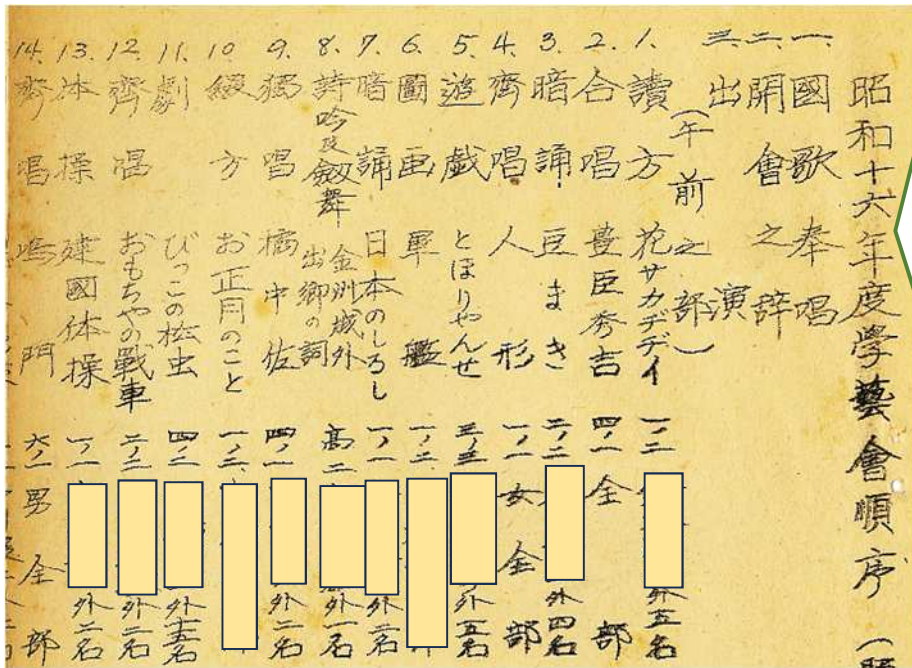 昭和十六年度學藝會順序
一、國歌奉唱
二、開會之辞
三、出演
(午前之部)
1. 讀方 花サカヂヂイ 一ノ二 外五名
2. 合唱 豊臣秀吉 四ノ一 全部
3. 暗誦 豆まき 二ノ二 外四名
4. 齊唱 人形 一ノ一 女全部
5. 遊戯 とほりやんせ 三ノ三 外五名
6. 圖画 軍艦 一ノ二
7. 暗誦 日本のしるし 一ノ一 外二名
8. 詩吟及劔舞 金州城外 出郷の詞 高二 外一名
9. 獨唱 橘中佐 四ノ一 外二名
10. 綴方 お正月のこと 一ノ二
11. 劇 びっこの松虫 四ノ二 名
12. 齊唱 おもちやの戰車 二ノ二 外二名
13. 体操 建國体操 一ノ一 外二名
14. 齊唱 鳴門 六ノ一 男全部